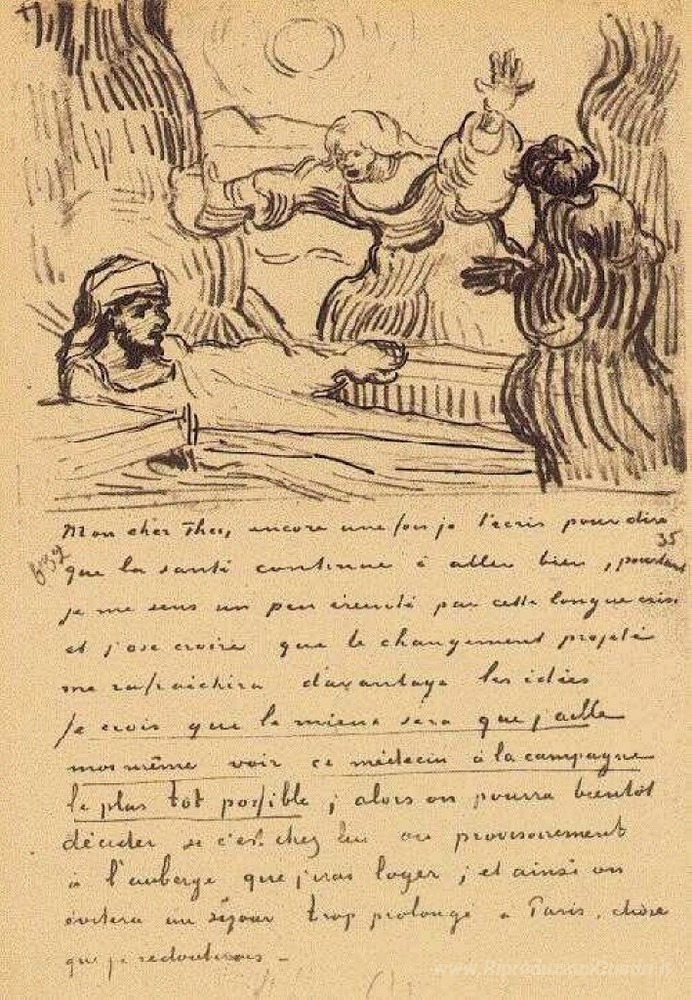 Mon cher Theo, encore une fois je t'écris pour dire
35
que la santé continue à aller bien, pourtant
639
je me sens un peu éreinté par cette longue crise
et j'ose croire que le changement projeté
me rafraichira davantage les idées
Je crois que le mieux sera que j'aille
moi même voir ce médecin à la campagne
le plus tôt possible ; alors on pourra bientôt
décider si c'est chez lui ou provisoirement
à l'auberge que j'irai loger ; et ainsi on
évitera un séjour trop prolongé à Paris, chose
que je redouterais –